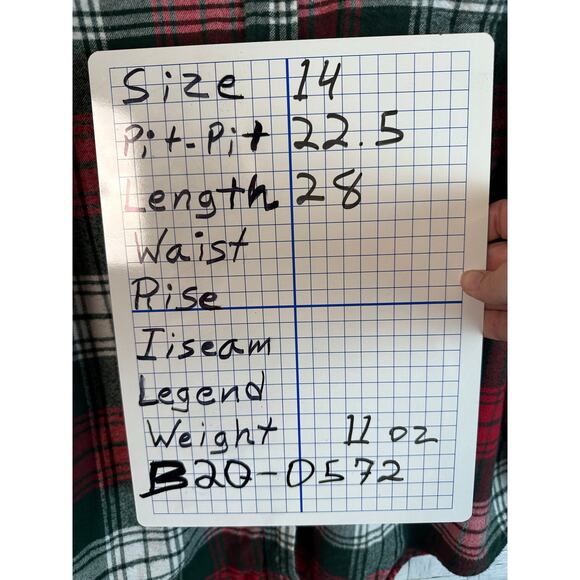 Size 14
Pit-Pit 22.5
Length 28
Waist
Rise
Iiseam
Legend
Weight 11 oz
B20-0572